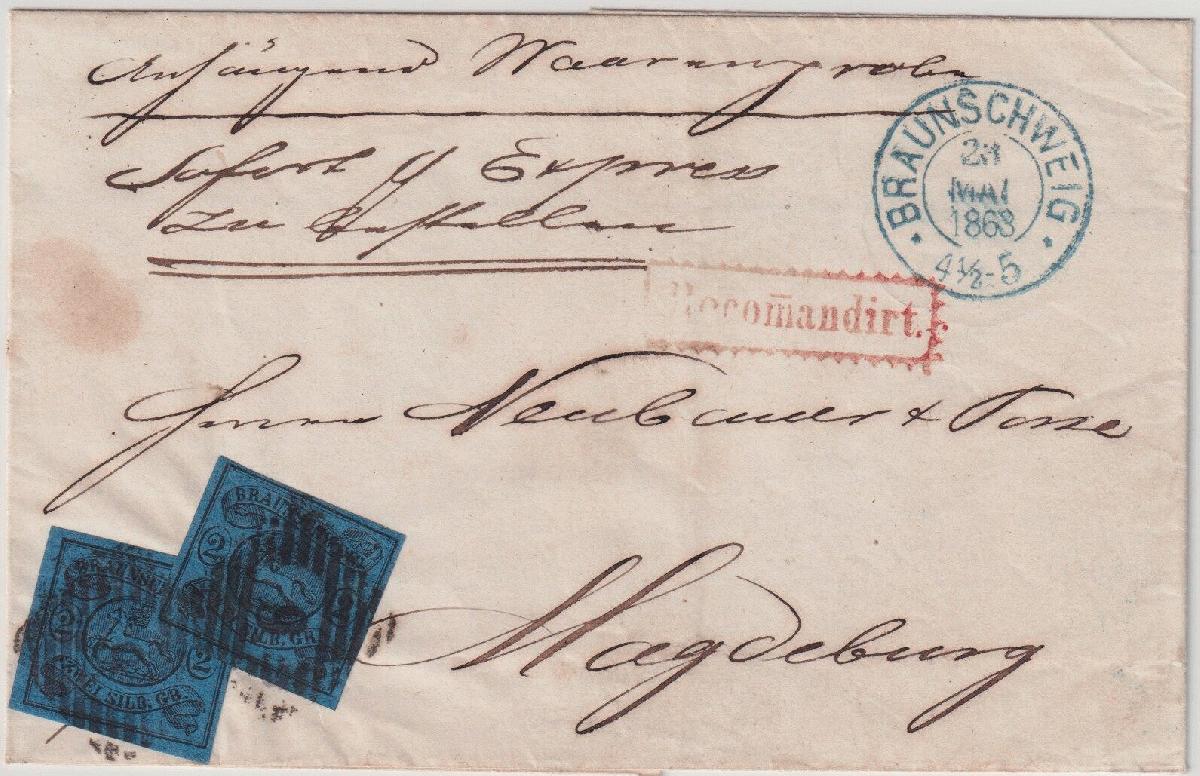 Anhängend Waarenprobe
Sofort p Express
zu bestellen
BRAUNSCHWEIG
23
MAI
1863
4½-5
Recom̄andirt.
Herren Neubauer & Porse
Magdeburg
BRAUN
2
2
SILB. GR.
BRAUNSCH
2
2
ZWEI SILB. GR.